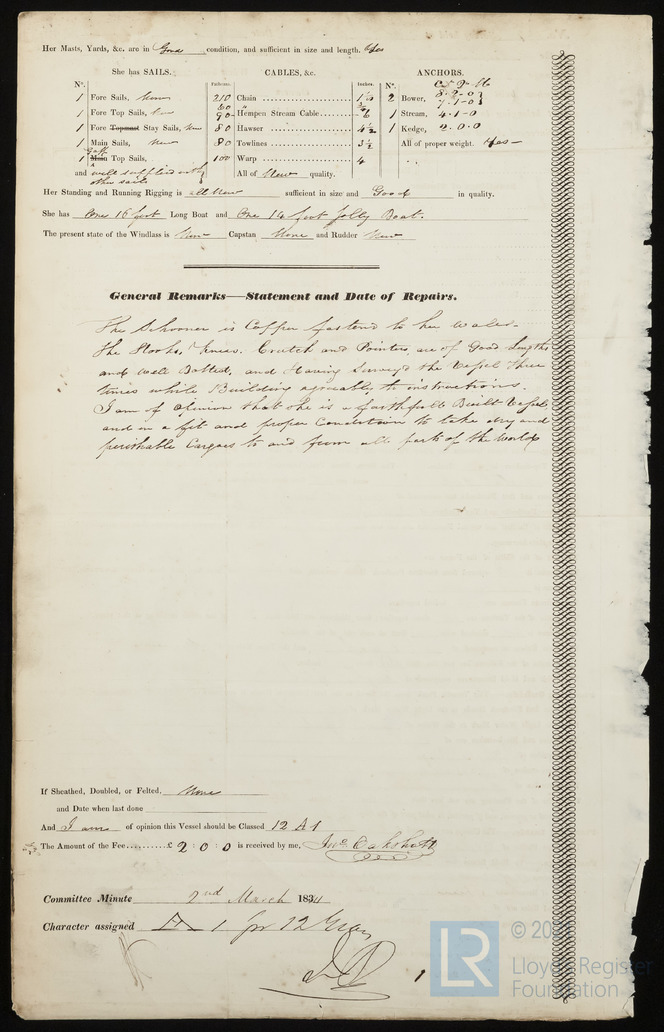 Her Masts, Yards, &c. are in Good condition, and sufficient in size and length. Yes
She has SAILS. CABLES, &c. ANCHORS.
N°. Fathoms. Inches. N°. C Q lb
1 Fore Sails, New 210 Chain 1 1/8 2 Bower, 8-2-0
1 Fore Top Sails, New 60 " 7-1-0
90 Hempen Stream Cable 6 1 Stream, 4-1-0
1 Fore Topmast Stay Sails, New 80 Hawser 4 1/2 1 Kedge, 2-0-0
1 Main Sails, New 80 Towlines 3 1/2 All of proper weight. Yes
1 Gaff Main Top Sails, 100 Warp 4
and well supplied with other sails All of New quality.
Her Standing and Running Rigging is all New sufficient in size and Good in quality.
She has One 16 feet Long Boat and One 14 feet Jolly Boat.
The present state of the Windlass is New Capstan None and Rudder New
General Remarks—Statement and Date of Repairs.
The Schooner is Copper fastend to her wales.
The Hooks, Knees. Crutch and Pointers, are of Good Lengths
and well Bolted, and Having Surveyd the Vessel three
times while Building agreeably to instructions.
I am of Opinion that she is a faithfull Built Vessel
and in a fit and proper Condition to take dry and
perishable Cargoes to and from all parts of the World
If Sheathed, Doubled, or Felted, None
and Date when last done
And I am of opinion this Vessel should be Classed 12 A1
The Amount of the Fee £ 2:0:0 is received by me, Jno. Oakshott
Committee Minute 2nd March 1834
Character assigned A 1 for 12 Years
1
LR
© 20
Lloyd's Register
Foundation